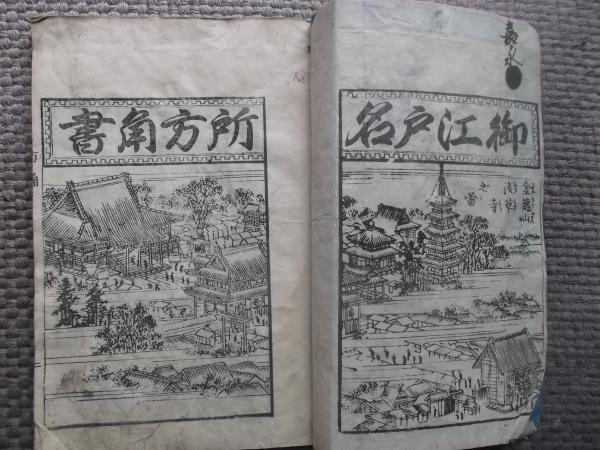 嘉永
御江戸名
金龍山
浅草寺
之圖
所方角書